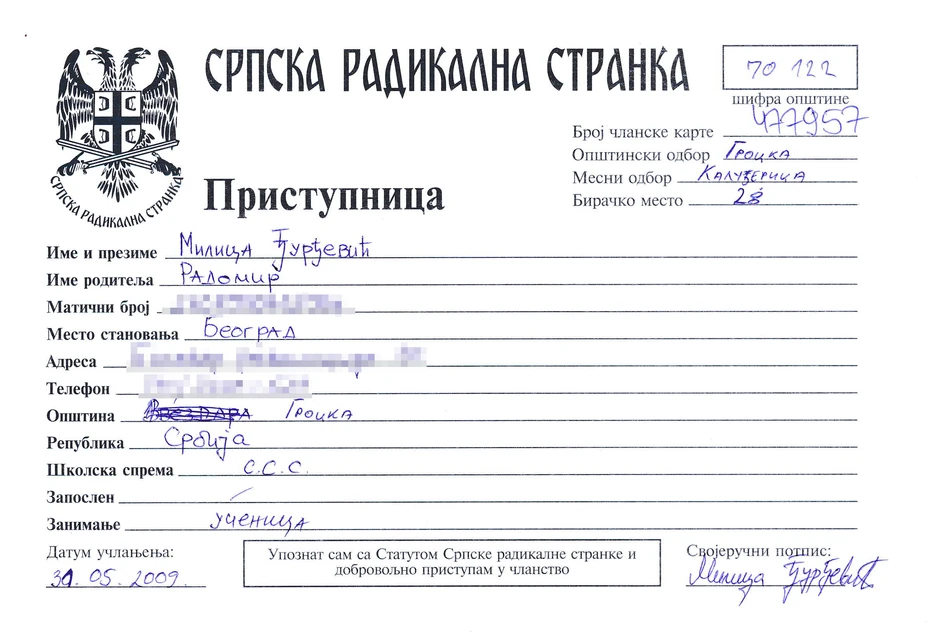 СРПСКА РАДИКАЛНА СТРАНКА
70 122
шифра општине
СРПСКА РАДИКАЛНА СТРАНКА
Број чланске карте 477957
Општински одбор Гроцка
Месни одбор Калуђерица
Бирачко место 28
Приступница
Име и презиме Милица Ђурђевић
Име родитеља Радомир
Матични број
Место становања Београд
Адреса
Телефон
Општина Гроцка
Република Србија
Школска спрема С.С.С.
Запослен
Занимање ученица
Датум учлањења:
31.05.2009.
Упознат сам са Статутом Српске радикалне странке и
добровољно приступам у чланство
Својеручни потпис:
Милица Ђурђевић